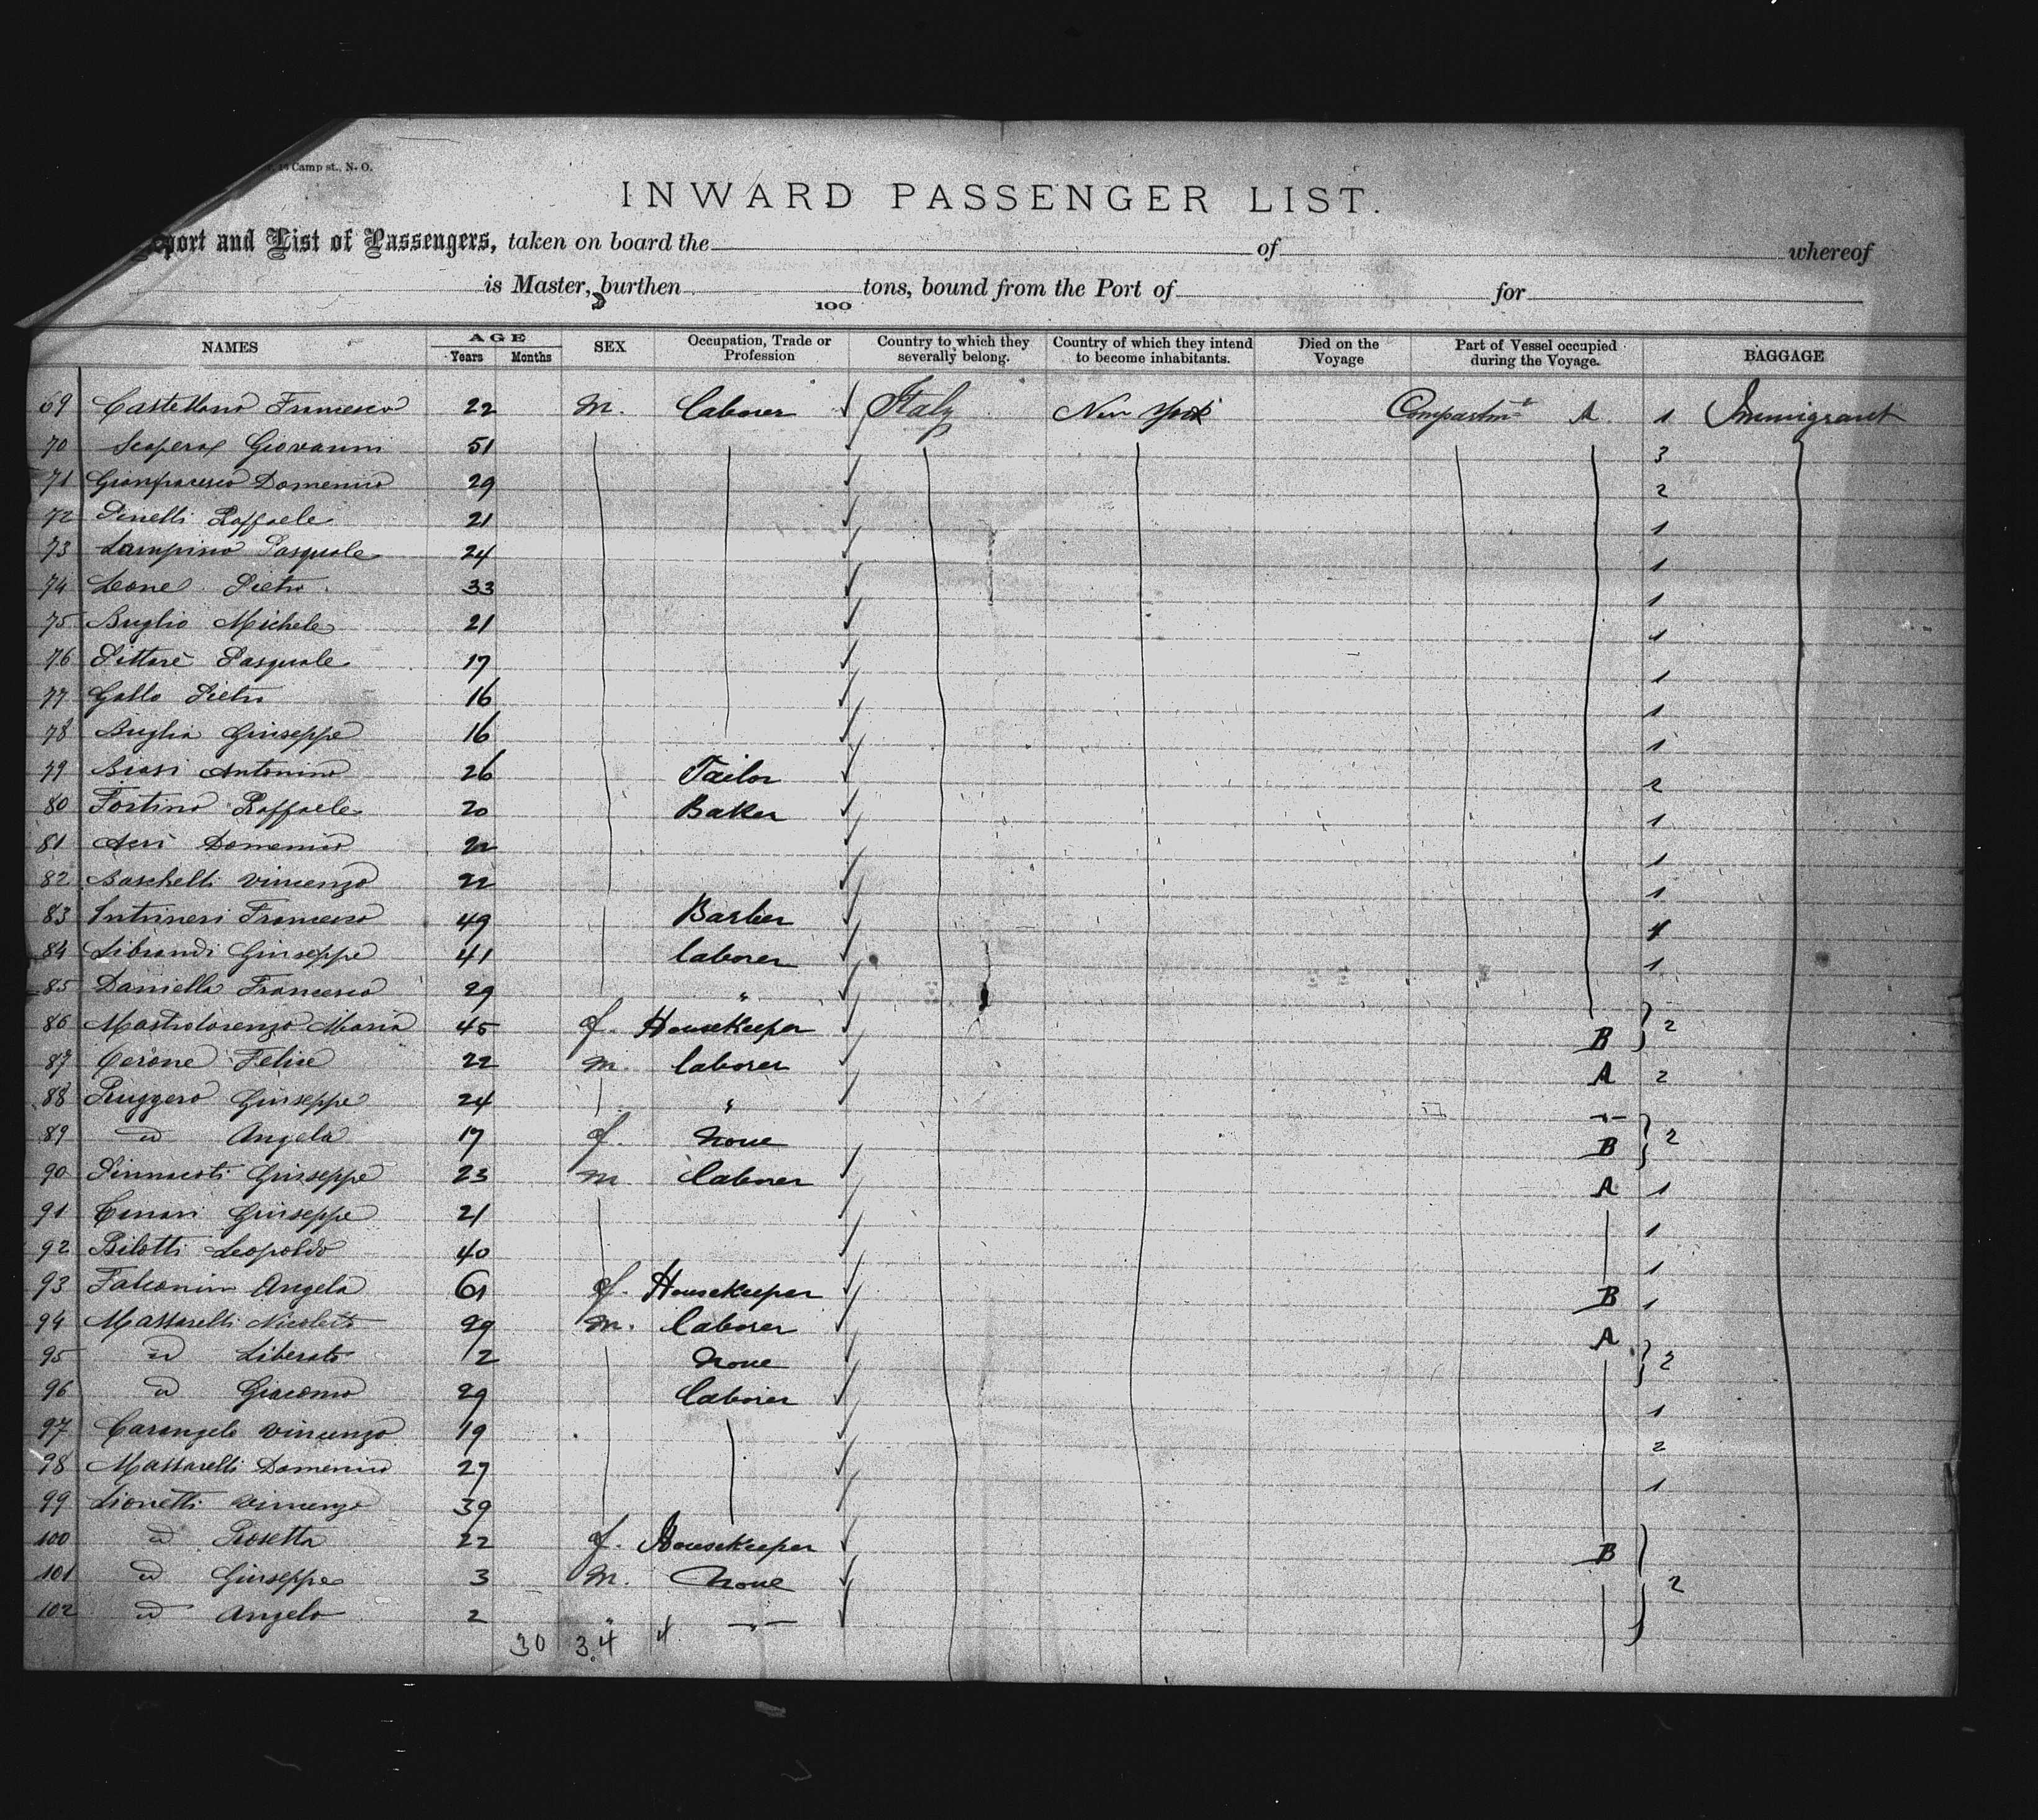 Camp st., N. O.
INWARD PASSENGER LIST.
port and List of Passengers, taken on board the of whereof
is Master, burthen 100 tons, bound from the Port of for
NAMES AGE Years Months SEX Occupation, Trade or Profession Country to which they severally belong. Country of which they intend to become inhabitants. Died on the Voyage Part of Vessel occupied during the Voyage. BAGGAGE
69 Castellano Francesco 22 m. laborer Italy New York Compartmt A. 1 Immigrant
70 Giovanni 51 3
71 Gianfracesco Domenico 29 2
72 Pinelli Raffaele 21 1
73 Lampino Pasquale 24 1
74 Leone Pietro 33 1
75 Buglio Michele 21 1
76 Pittarè Pasquale 17 1
77 Gallo Pietro 16 1
78 Buglia Giuseppe 16 1
79 Biasi Antonino 26 Tailor 2
80 Fortino Raffaele 20 Baker 1
81 Acri Domenico 22 1
82 Baschelli Vincenzo 22 1
83 Intrineri Francesco 49 Barber 1
84 Librandi Giuseppe 41 laborer 1
85 Daniella Francesco 29 "
86 Mastrolorenzo Maria 45 f. Housekeeper B 2
87 Cerone Felice 22 m. laborer A 2
88 Ruggero Giuseppe 24 " -"-
89 id Angela 17 f. None B 2
90 Giuseppe 23 m laborer A 1
91 Giuseppe 21 1
92 Bilotti Leopoldo 40 1
93 Falconiin Angela 61 f. Housekeeper B 1
94 Massarelli Nicoletto 29 m. laborer A
95 id Liberato 12 None 2
96 id Giacomo 29 laborer 1
97 Carangelo Vincenzo 19 2
98 Massarelli Domenico 27 1
99 Lionetti Vincenzo 39
100 id Rosetta 22 f. Housekeeper B
101 id Giuseppe 3 m. None 2
102 id Angelo 2 " -"-
30 34 4